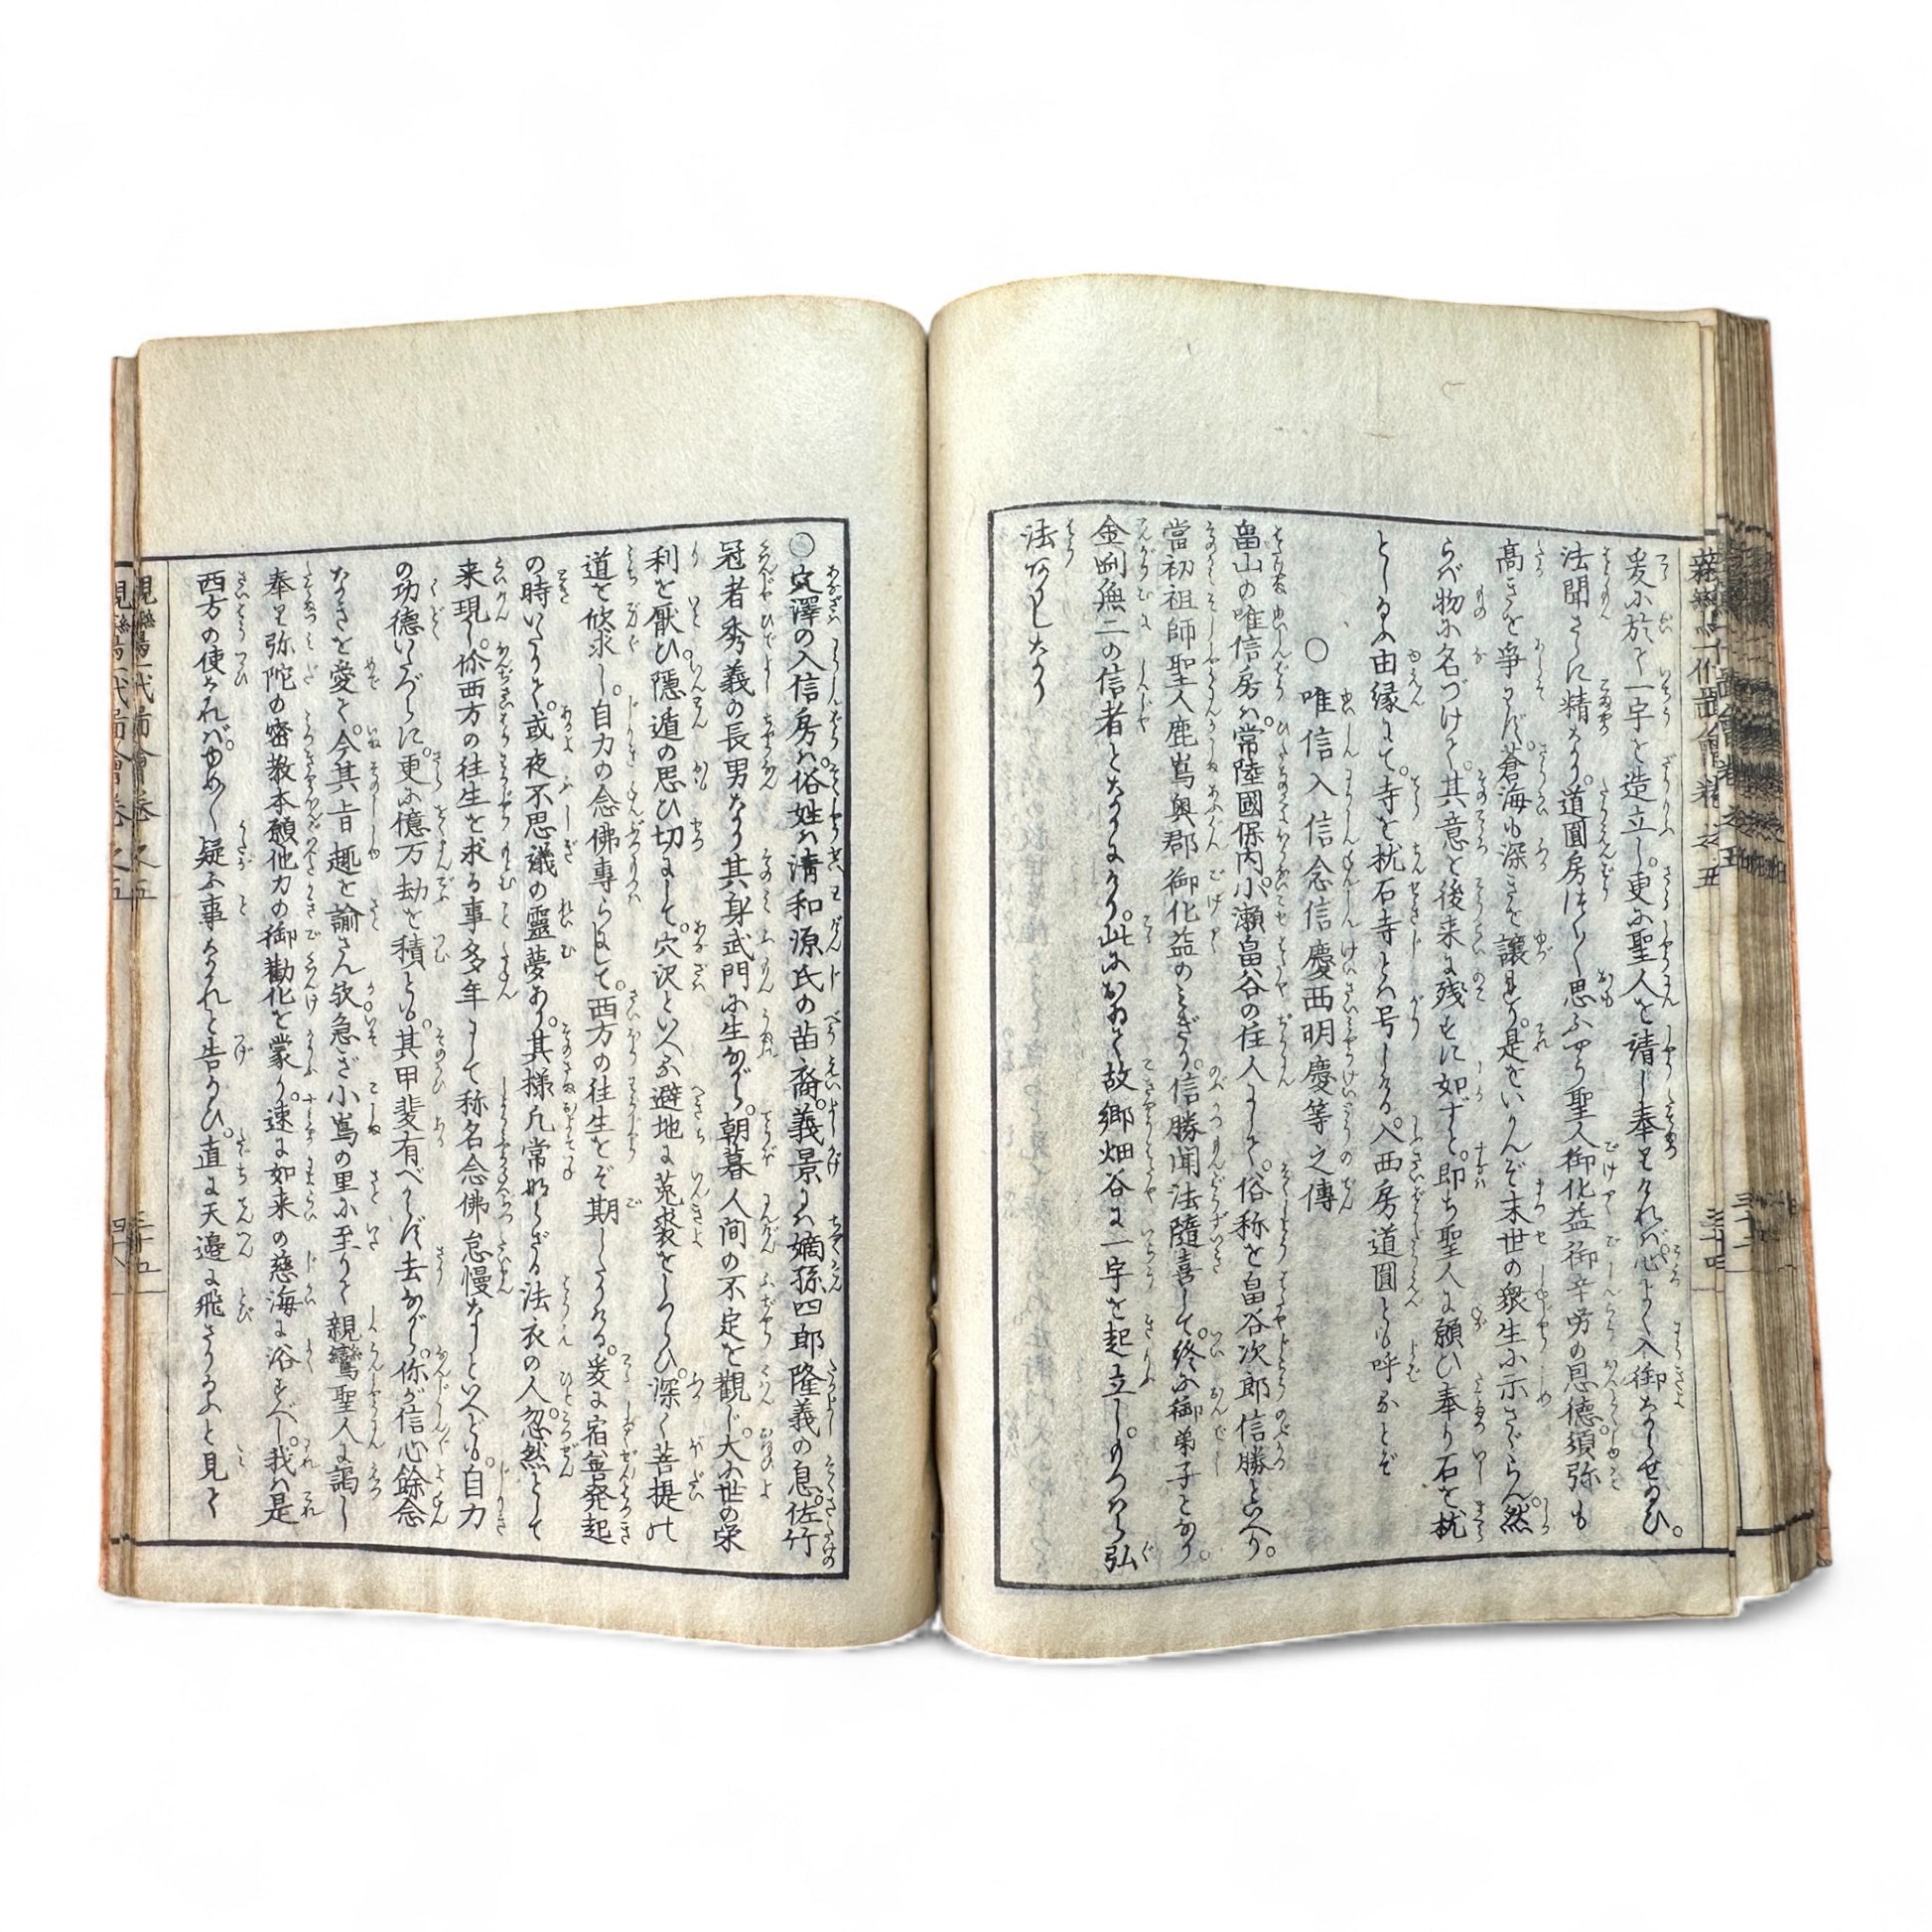 爰に於て一宇を造立し。更に聖人を請じ奉りければ。心よく入御なしせ給ひ。
法聞さらに精なり。道圓房つく〴〵思ふやう聖人御化益御辛労の恩徳。須弥も
高きを争はず。蒼海も深きを譲るべし。是をいかんぞ末世の衆生に示さゞらん。然
らば物に名づけて。其意を後来に残すに如ずと。即ち聖人に願ひ奉り石を枕
としたまふ由縁にて。寺を枕石寺とは号しける。入西房道圓とも呼なとぞ
○唯信入信念信慶西明慶等之傳
畠山の唯信房は。常陸國保内小瀬畠谷の住人にして。俗称を畠谷次郎信勝といへり。
當初祖師聖人鹿嶌奥郡御化益のみぎり。信勝聞法隨喜して。終に御弟子となり。
金剛無二の信者となりにけり。此において故郷畑谷に一宇を起立し。もつはら弘
法なしたまひけり
○穴澤の入信房は。俗姓は清和源氏の苗裔。義景には嫡孫四郎隆義の息。佐竹
冠者秀義の長男なり其身武門に生ながら。朝暮人間の不定を観じ。大に世の栄
利を厭ひ。隠遁の思ひ切にして。穴沢といふ避地に菟裘をしつらひ。深く菩提の
道を欣求し。自力の念佛専らにして。西方の往生をぞ期したりける。爰に宿善発起
の時いたりて。或夜不思議の靈夢あり。其様凡常ならざる法衣の人。忽然として
来現し。你西方の往生を求る事多年にして称名念佛怠慢なしといへども。自力
の功徳いたづらに。更に億万劫を積とも。其甲斐有べからず去ながら。你が信心餘念
なきを愛て。今其旨趣を諭さん欤急ぎ小嶌の里に至りて親鸞聖人に謁し
奉り弥陀の密教本願他力の御勧化を蒙り。速に如来の慈海に浴すべし。我は是
西方の使なれば。ゆめ〳〵疑ふ事なかれと告給ひ。直に天邊に飛さりたまふと見て